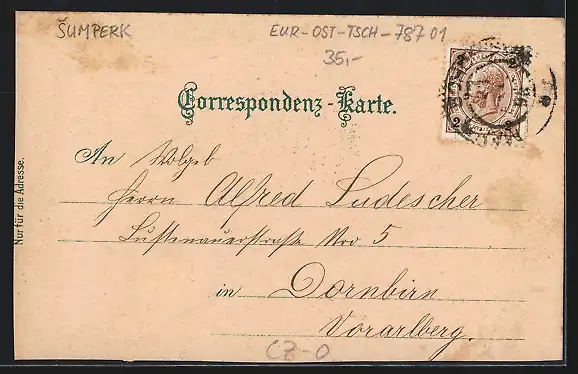 ŠUMPERK
EUR-OST-TSCH-787 01
35,-
Correspondenz-Karte.
An Wolgeb
Herrn Alfred Ludescher
Lustenauerstraße Nro 5
in Dornbirn
Vorarlberg.
Nur für die Adresse.
CZ-O